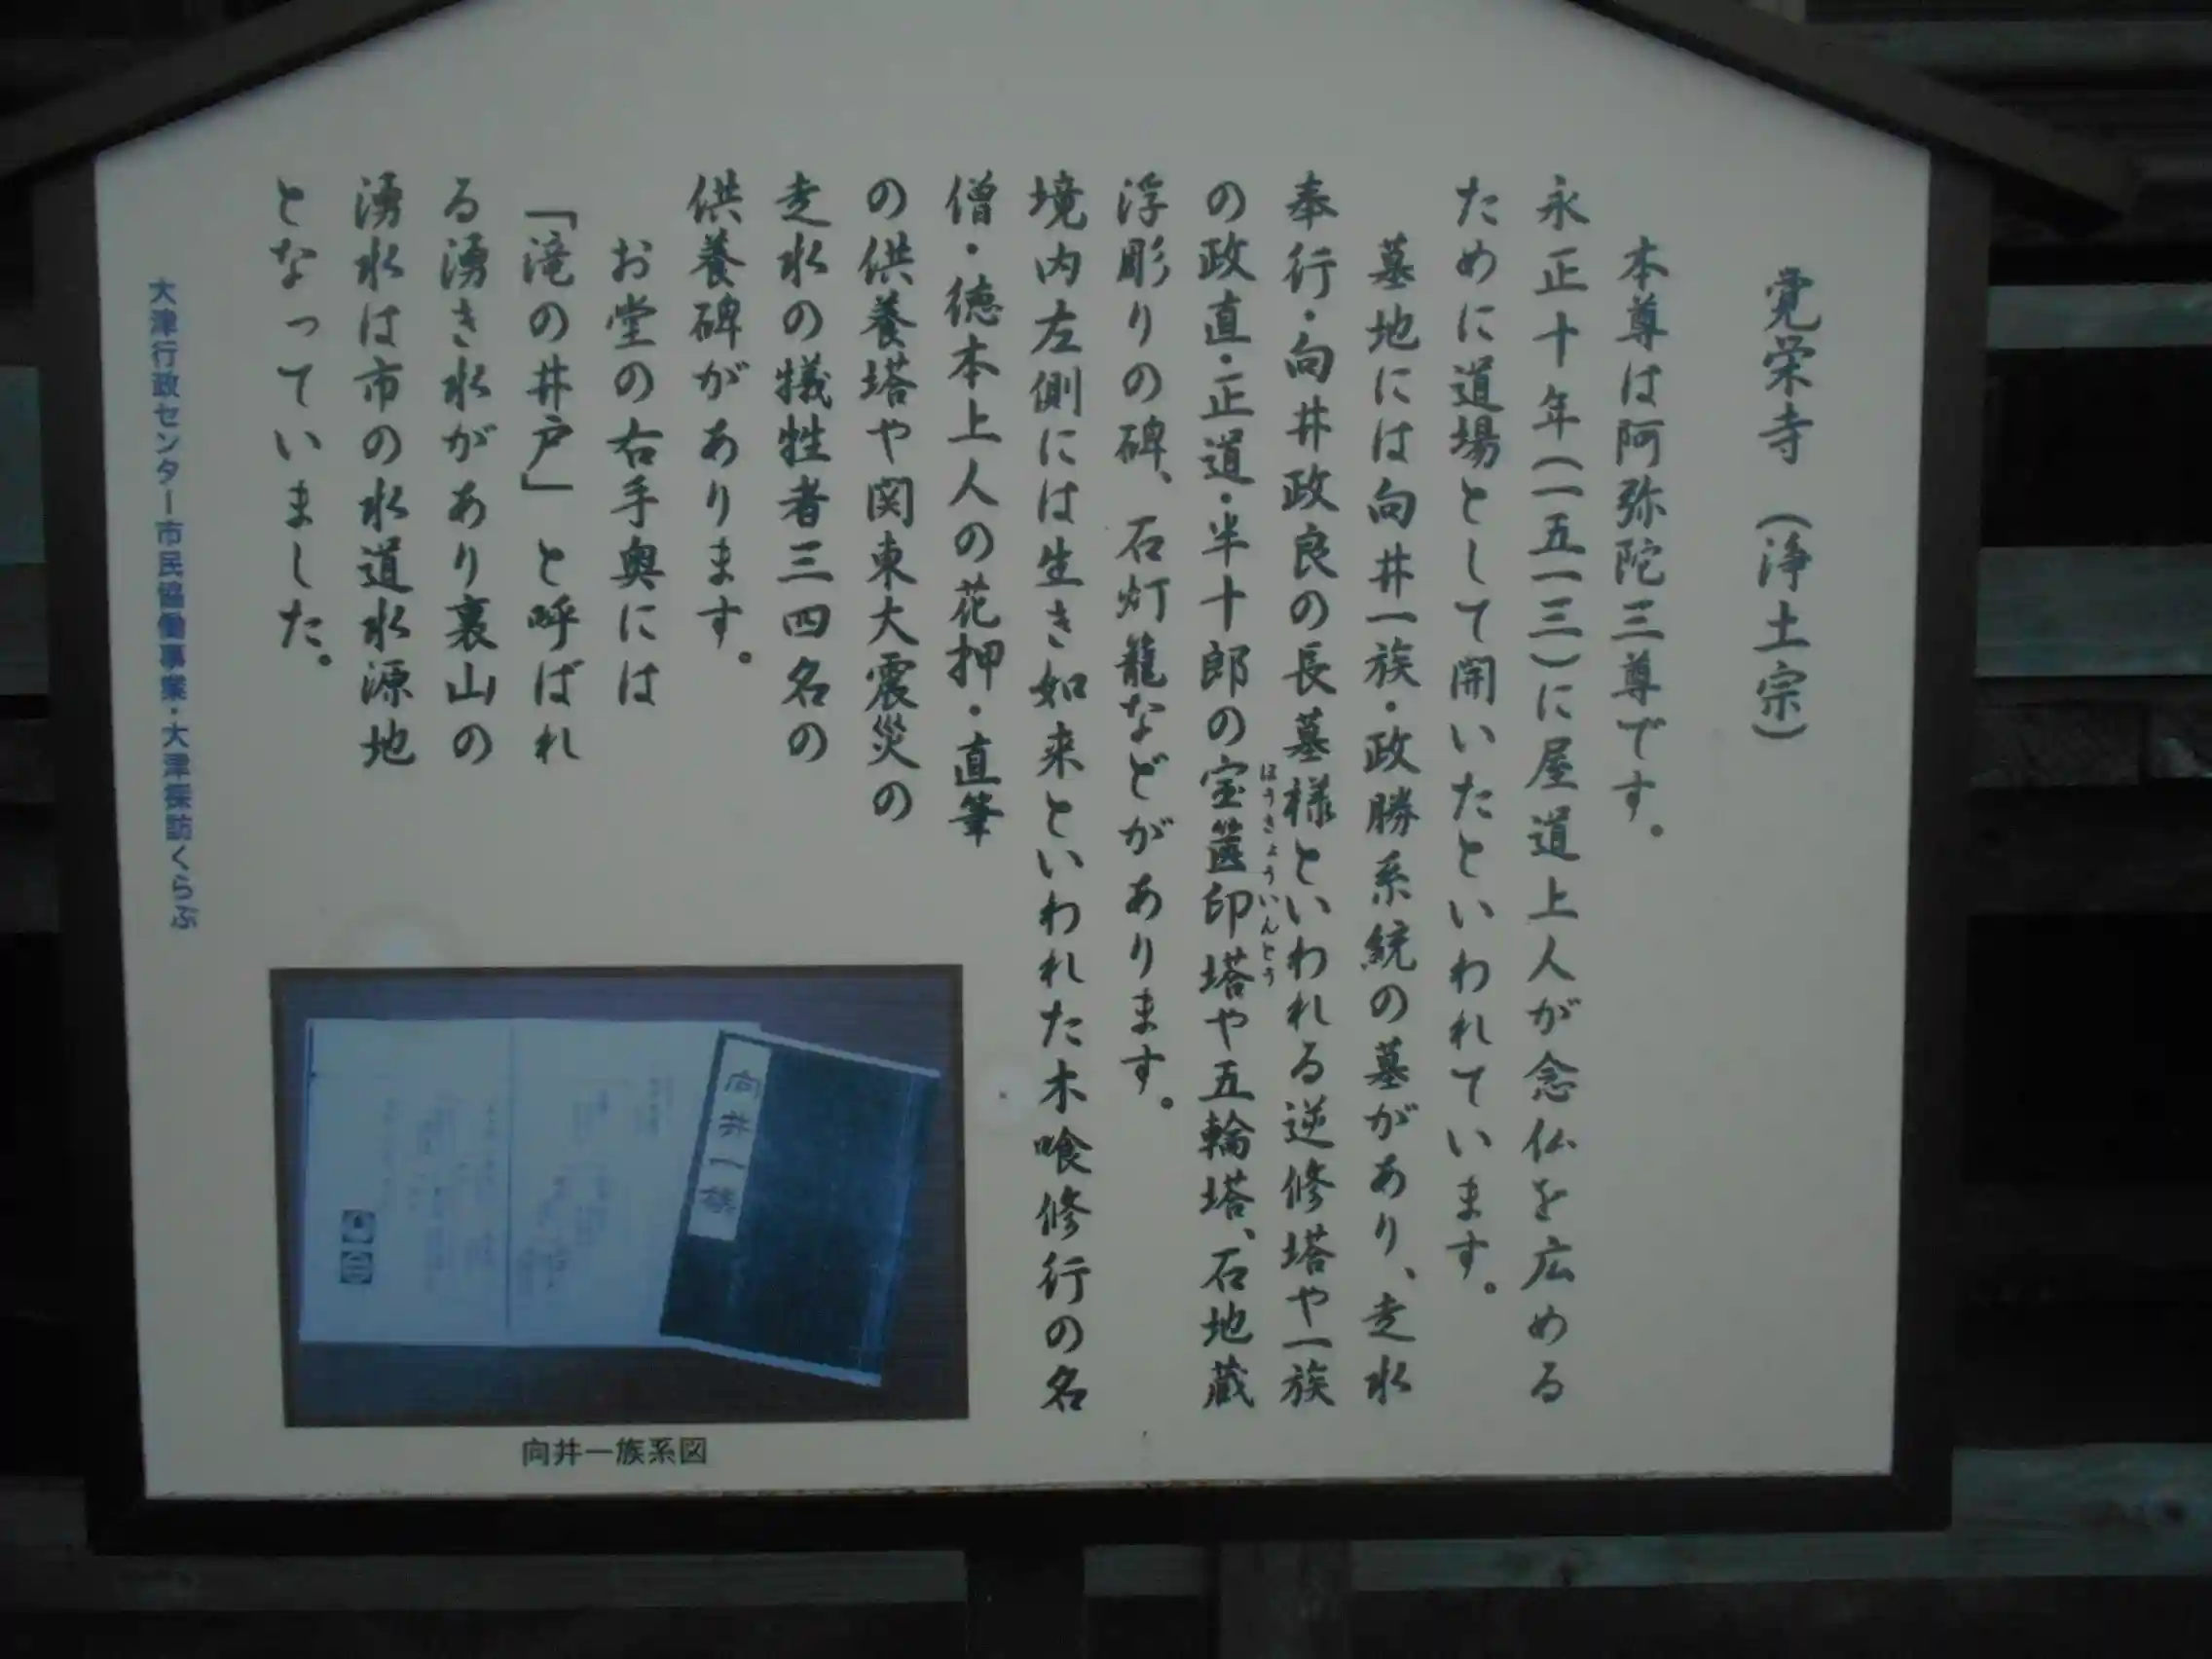 覚栄寺（浄土宗）
本尊は阿弥陀三尊です。
永正十年（一五一三）に屋道上人が念仏を広める
ために道場として開いたといわれています。
墓地には向井一族・政勝系統の墓があり、走水
奉行・向井政良の長墓様といわれる逆修塔や一族
の政直・正道・半十郎の宝篋印塔や五輪塔、石地蔵
ほうきょういんとう
浮彫りの碑、石灯籠などがあります。
境内左側には生き如来といわれた木喰修行の名
僧・徳本上人の花押・直筆
の供養塔や関東大震災の
走水の犠牲者三四名の
供養碑があります。
お堂の右手奥には
「滝の井戸」と呼ばれ
る湧き水があり裏山の
湧水は市の水道水源地
となっていました。
大津行政センター市民協働事業・大津探訪くらぶ
向井一族
向井一族系図